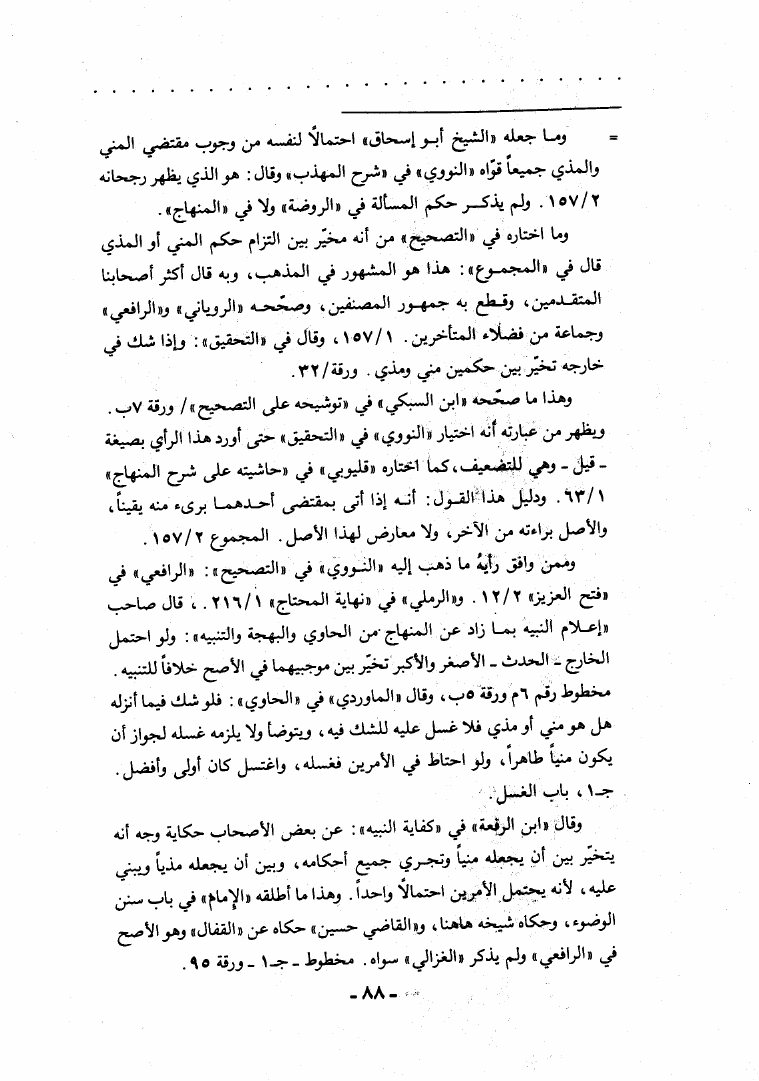 = وما جعله «الشيخ أبو إسحاق» احتمالًا لنفسه من وجوب مقتضي المني
والمذي جميعاً قوّاه «النووي» في «شرح المهذب» وقال: هو الذي يظهر رجحانه
١٥٧/٢. ولم يذكر حكم المسألة في «الروضة» ولا في «المنهاج».
وما اختاره في «التصحيح» من أنه مخيّر بين التزام حكم المني أو المذي
قال في «المجموع»: هذا هو المشهور في المذهب، وبه قال أكثر أصحابنا
المتقدمين، وقطع به جمهور المصنفين، وصحّحه «الروياني» و«الرافعي»
وجماعة من فضلاء المتأخرين. ١٥٧/١، وقال في «التحقيق»: وإذا شك في
خارجه تخيّر بين حكمين مني ومذي. ورقة/٣٢.
وهذا ما صحّحه «ابن السبكي» في «توشيحه على التصحيح»/ ورقة ٧ب.
ويظهر من عبارته أنه اختيار «النووي» في «التحقيق» حتى أورد هذا الرأي بصيغة
- قيل - وهي للتضعيف، كما اختاره «قليوبي» في «حاشيته على شرح المنهاج»
٦٣/١. ودليل هذا القول: أنه إذا أتى بمقتضى أحدهما برىء منه يقيناً،
والأصل براءته من الآخر، ولا معارض لهذا الأصل. المجموع ١٥٧/٢.
وممن وافق رأيهُ ما ذهب إليه «النووي» في «التصحيح»: «الرافعي» في
«فتح العزيز» ١٢/٢. و«الرملي» في «نهاية المحتاج» ٢١٦/١. ، قال صاحب
«إعلام النبيه بما زاد عن المنهاج من الحاوي والبهجة والتنبيه»: ولو احتمل
الخارج - الحدث - الأصغر والأكبر تخيّر بين موجبيهما في الأصح خلافاً للتنبيه.
مخطوط رقم ٦م ورقة ٥ب، وقال «الماوردي» في «الحاوي»: فلو شك فيما أنزله
هل هو مني أو مذي فلا غسل عليه للشك فيه، ويتوضأ ولا يلزمه غسله لجواز أن
يكون منياً طاهراً، ولو احتاط في الأمرين فغسله، واغتسل كان أولى وأفضل.
جـ١، باب الغسل.
وقال «ابن الرفعة» في «كفاية النبيه»: عن بعض الأصحاب حكاية وجه أنه
يتخيّر بين أن يجعله منياً وتجري جميع أحكامه، وبين أن يجعله مذياً ويبني
عليه، لأنه يحتمل الأمرين احتمالًا واحداً. وهذا ما أطلقه «الإمام» في باب سنن
الوضوء، وحكاه شيخه هاهنا، و«القاضي حسين» حكاه عن «القفال» وهو الأصح
في «الرافعي» ولم يذكر «الغزالي» سواه. مخطوط - جـ١ - ورقة ٩٥.
- ٨٨ -